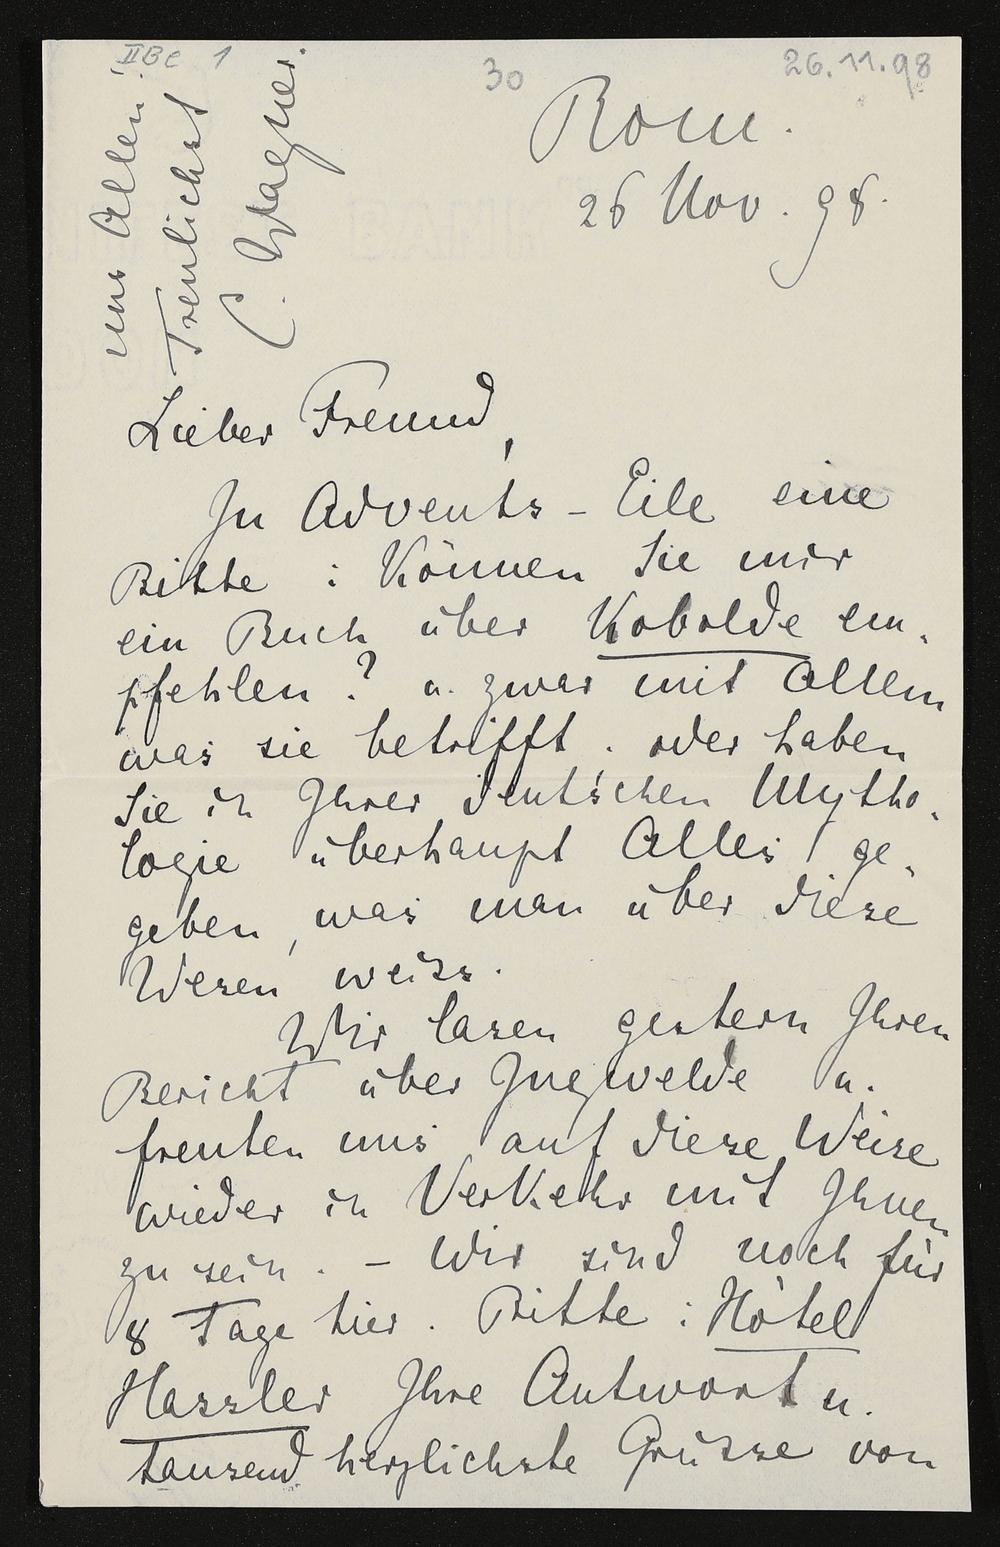 IIBe 1
30
26.11.98
Rom.
26 Nov. 98.
Lieber Freund,
In Advents-Eile eine
Bitte: Können Sie mir
ein Buch über Kobolde em-
pfehlen? u. zwar mit Allem
was sie betrifft. oder haben
Sie in Ihrer deutschen Mytho-
logie überhaupt Alles ge-
geben, was man über diese
Wesen weiss.
Wir lasen gestern Ihren
Bericht über Ingwelde u.
freuten uns auf diese Weise
wieder in Verkehr mit Ihnen
zu sein. - Wir sind noch für
8 Tage hier. Bitte: Hôtel
Hassler Ihre Antwort u.
tausend herzlichste Grüsse von
uns Allen!
Treulichst
C. Wagner.